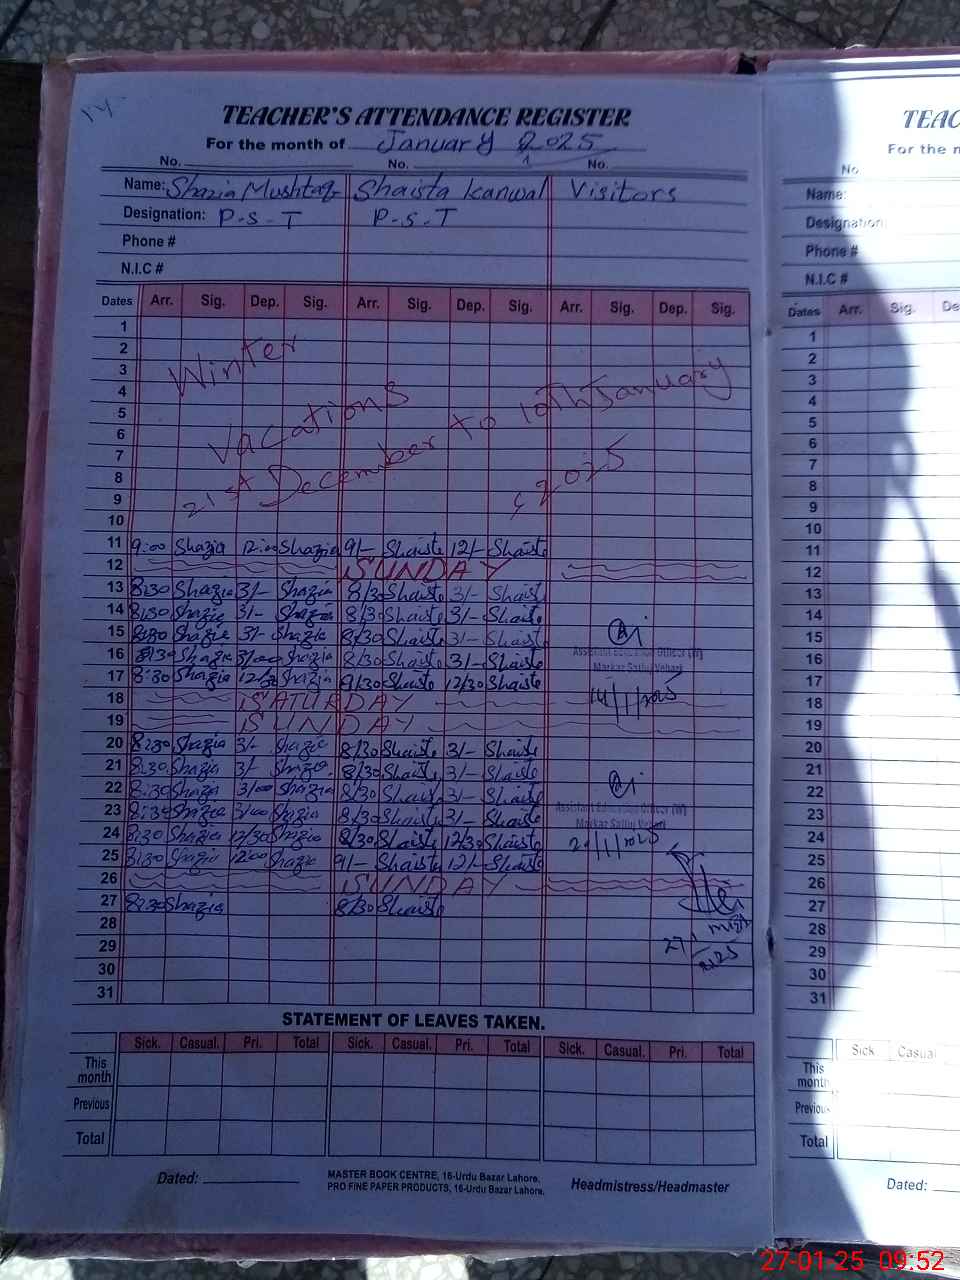 TEACHER'S ATTENDANCE REGISTER
For the month of January 2025
No. No. No.
Name: Shazia Mushtaq Shaista Kanwal Visitors
Designation: P-S-T P-S-T
Phone #
N.I.C #
Dates Arr. Sig. Dep. Sig. Arr. Sig. Dep. Sig. Arr. Sig. Dep. Sig.
1
2
3
4
5
6
7
8
9
10
Winter
Vacations
21st December to 10th January
, 2025
11 9:00 Shazia 12:00 Shazia 9/- Shaista 12/- Shaista
12 SUNDAY
13 8:30 Shazia 3/- Shazia 8/30 Shaista 3/- Shaista
14 8:30 Shazia 3/- Shazia 8/30 Shaista 3/- Shaista
15 8:30 Shazia 3/- Shazia 8/30 Shaista 3/- Shaista
16 8:30 Shazia 3/00 Shazia 8/30 Shaista 3/- Shaista
Assistant Education Officer (W)
Markaz Vehari
17 8:30 Shazia Shazia Shaista 12/30 Shaista
14/1/2025
18 SATURDAY
19 SUNDAY
20 8:30 Shazia 3/- Shazia 8/30 Shaista 3/- Shaista
21 8:30 Shazia 3/- Shazia 8/30 Shaista 3/- Shaista
22 8:30 Shazia 3/00 Shazia 8/30 Shaista 3/- Shaista
23 8:30 Shazia 3/00 Shazia 8/30 Shaista 3/- Shaista
Assistant Education Officer (W)
Markaz Vehari
24 8:30 Shazia 12/30 Shazia 8/30 Shaista 12/30 Shaista
25 8:30 Shazia 12:00 Shazia 9/- Shaista 12/- Shaista
26 SUNDAY
27 8:30 Shazia 8/30 Shaista
28
29
30
31
STATEMENT OF LEAVES TAKEN.
Sick. Casual. Pri. Total Sick. Casual. Pri. Total Sick. Casual. Pri. Total
This month
Previous
Total
Dated:
MASTER BOOK CENTRE, 16-Urdu Bazar Lahore.
PRO FINE PAPER PRODUCTS, 16-Urdu Bazar Lahore.
Headmistress/Headmaster
TEAC
For the m
No.
Name:
Designation:
Phone #
N.I.C #
Dates Arr. Sig. De
1
2
3
4
5
6
7
8
9
10
11
12
13
14
15
16
17
18
19
20
21
22
23
24
25
26
27
28
29
30
31
Sick Casual
This month
Previous
Total
Dated:
27-01-25 09:52